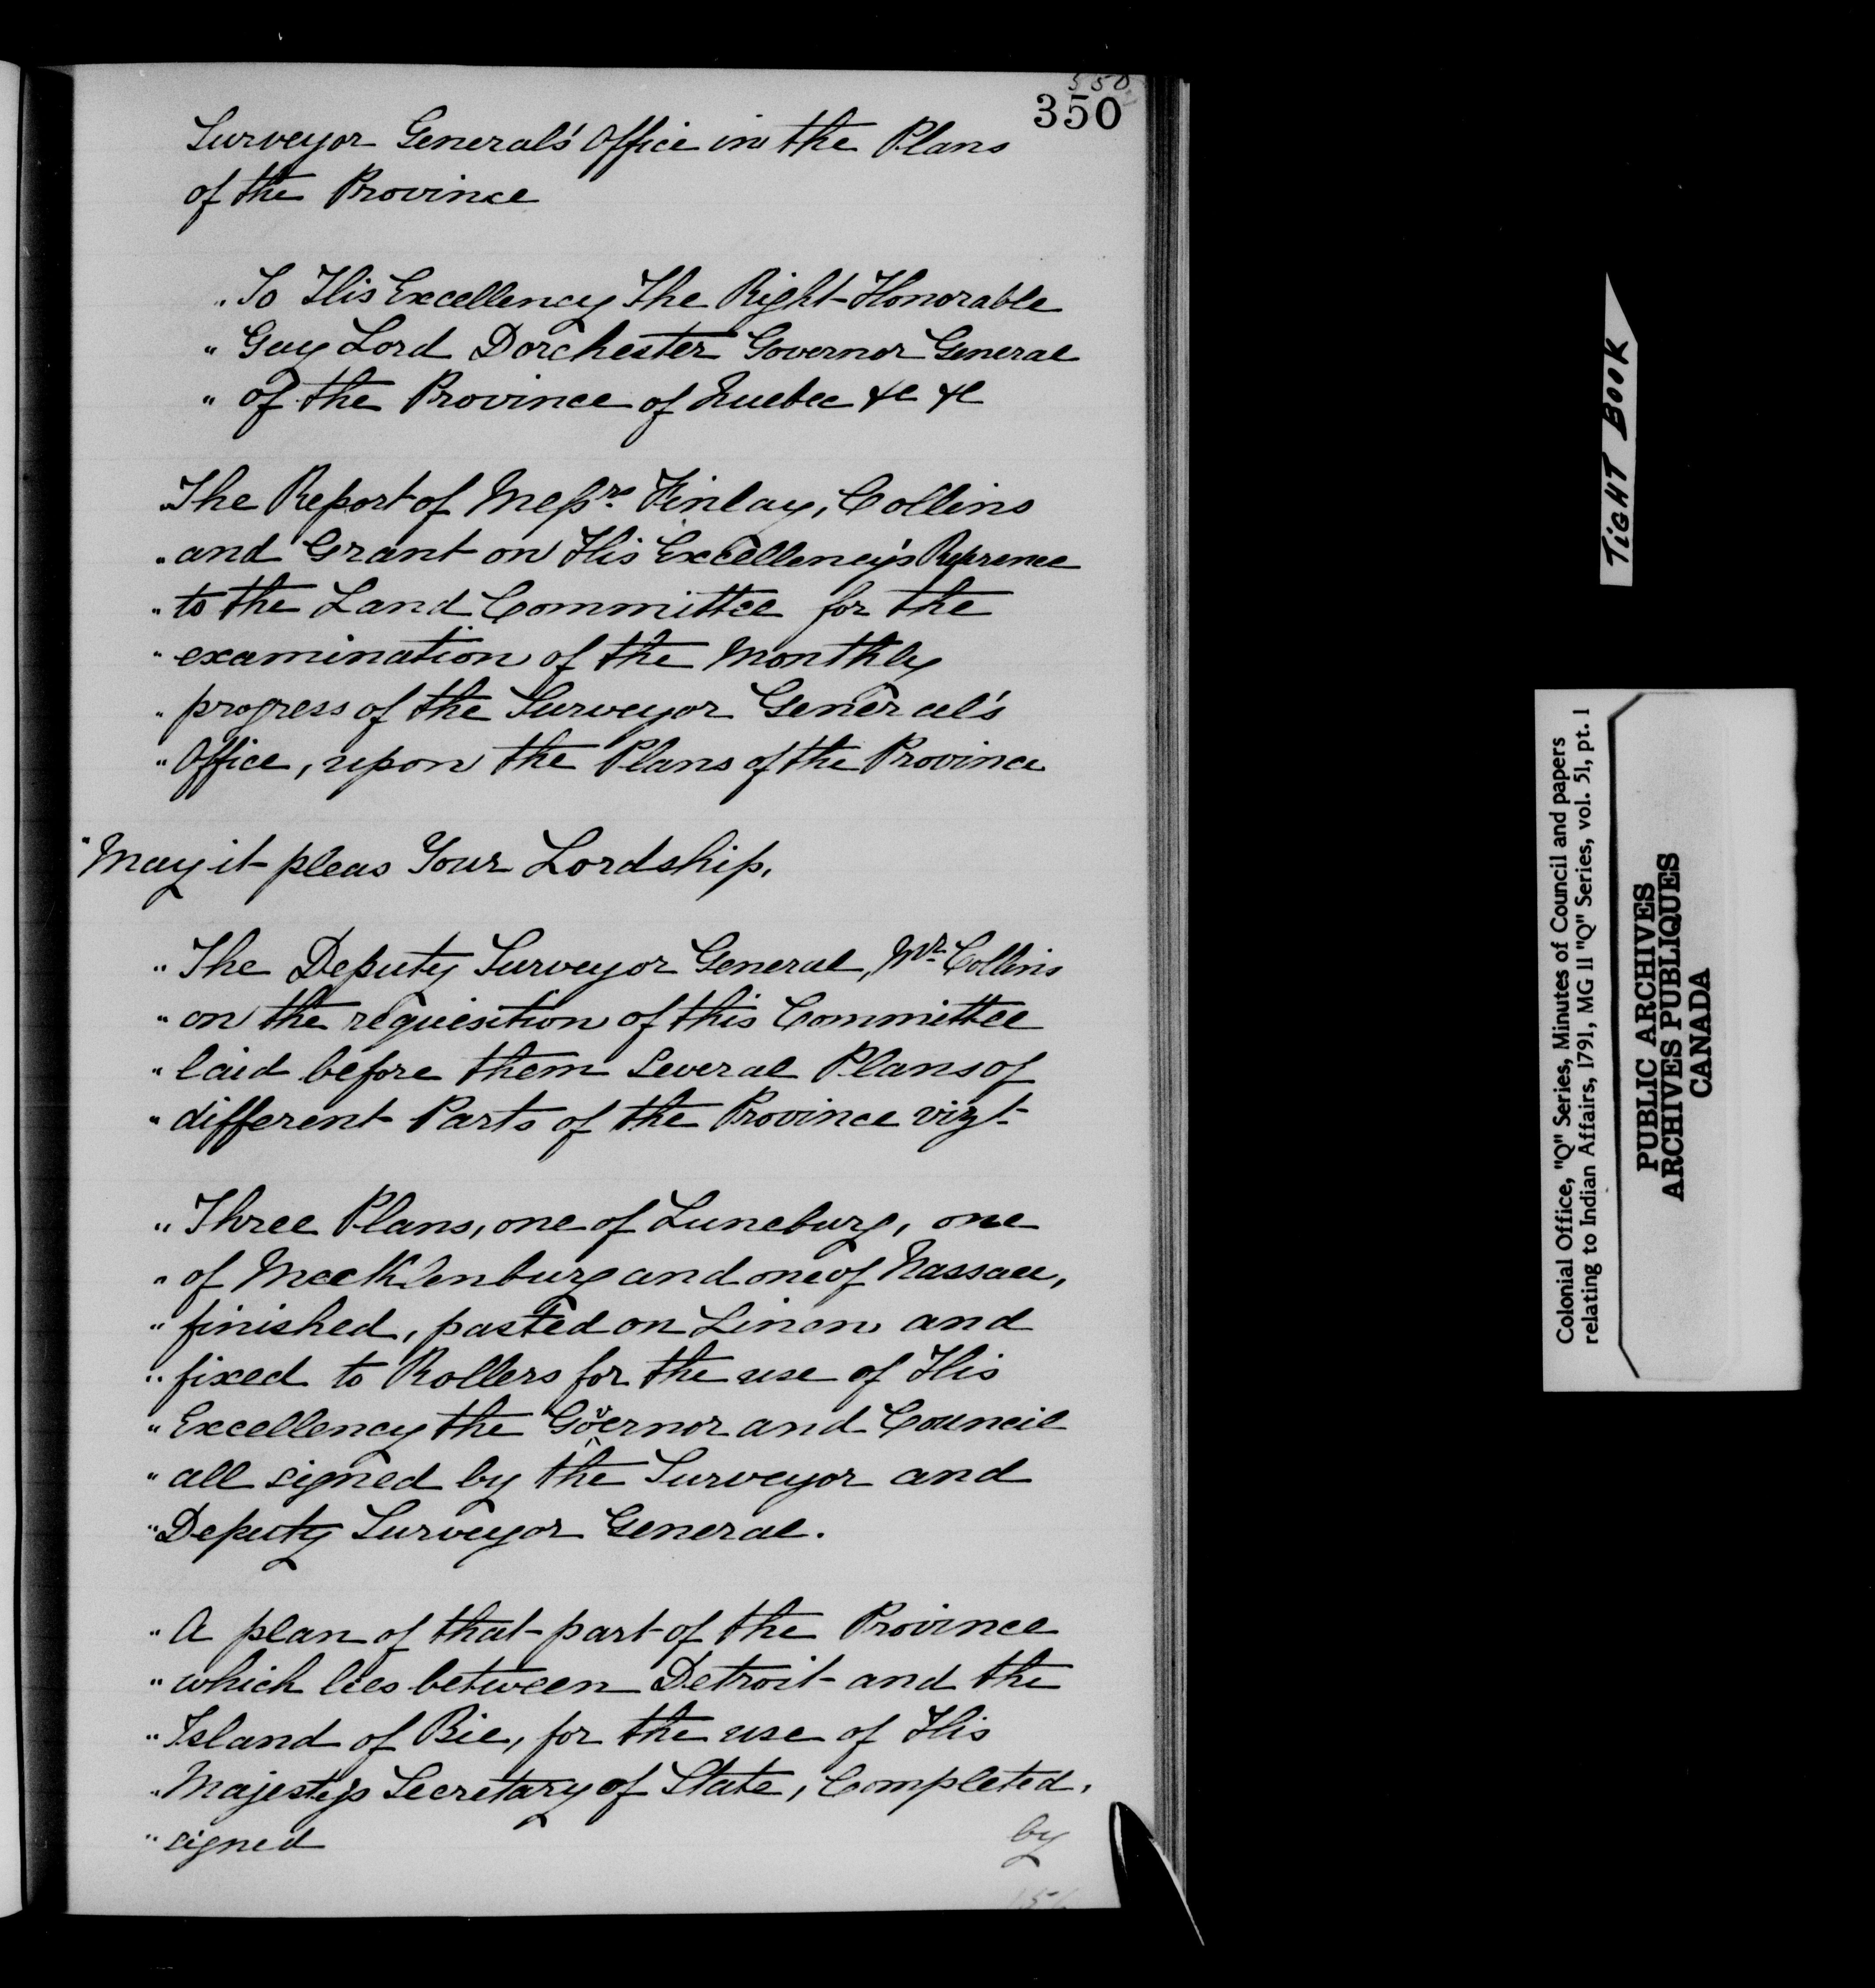 350
350
Surveyor General's Office in the Plans
of the Province
" To His Excellency The Right Honorable
" Guy Lord Dorchester Governor General
" of the Province of Quebec &c &c
"The Report of Messrs. Finlay, Collins
" and Grant on His Excellency's Reference
" to the Land Committee for the
" examination of the Monthly
" progress of the Surveyor General's
" Office, upon the Plans of the Province
" May it pleas Your Lordship,
" The Deputy Surveyor General, Mr. Collins
" on the requisition of this Committee
" laid before them several Plans of
" different Parts of the Province vizt
" Three Plans, one of Luneburg, one
" of Mecklenburg and one of Nassau,
" finished, pasted on Linen and
" fixed to Rollers for the use of His
" Excellency the Governor and Council
" all signed by the Surveyor and
" Deputy Surveyor General.
" A plan of that part of the Province
" which lies between Detroit and the
" Island of Bic, for the use of His
" Majesty's Secretary of State, Completed,
" signed by
TIGHT BOOK
Colonial Office, "Q" Series, Minutes of Council and papers
relating to Indian Affairs, 1791, MG 11 "Q" Series, vol. 51, pt. 1
PUBLIC ARCHIVES
ARCHIVES PUBLIQUES
CANADA